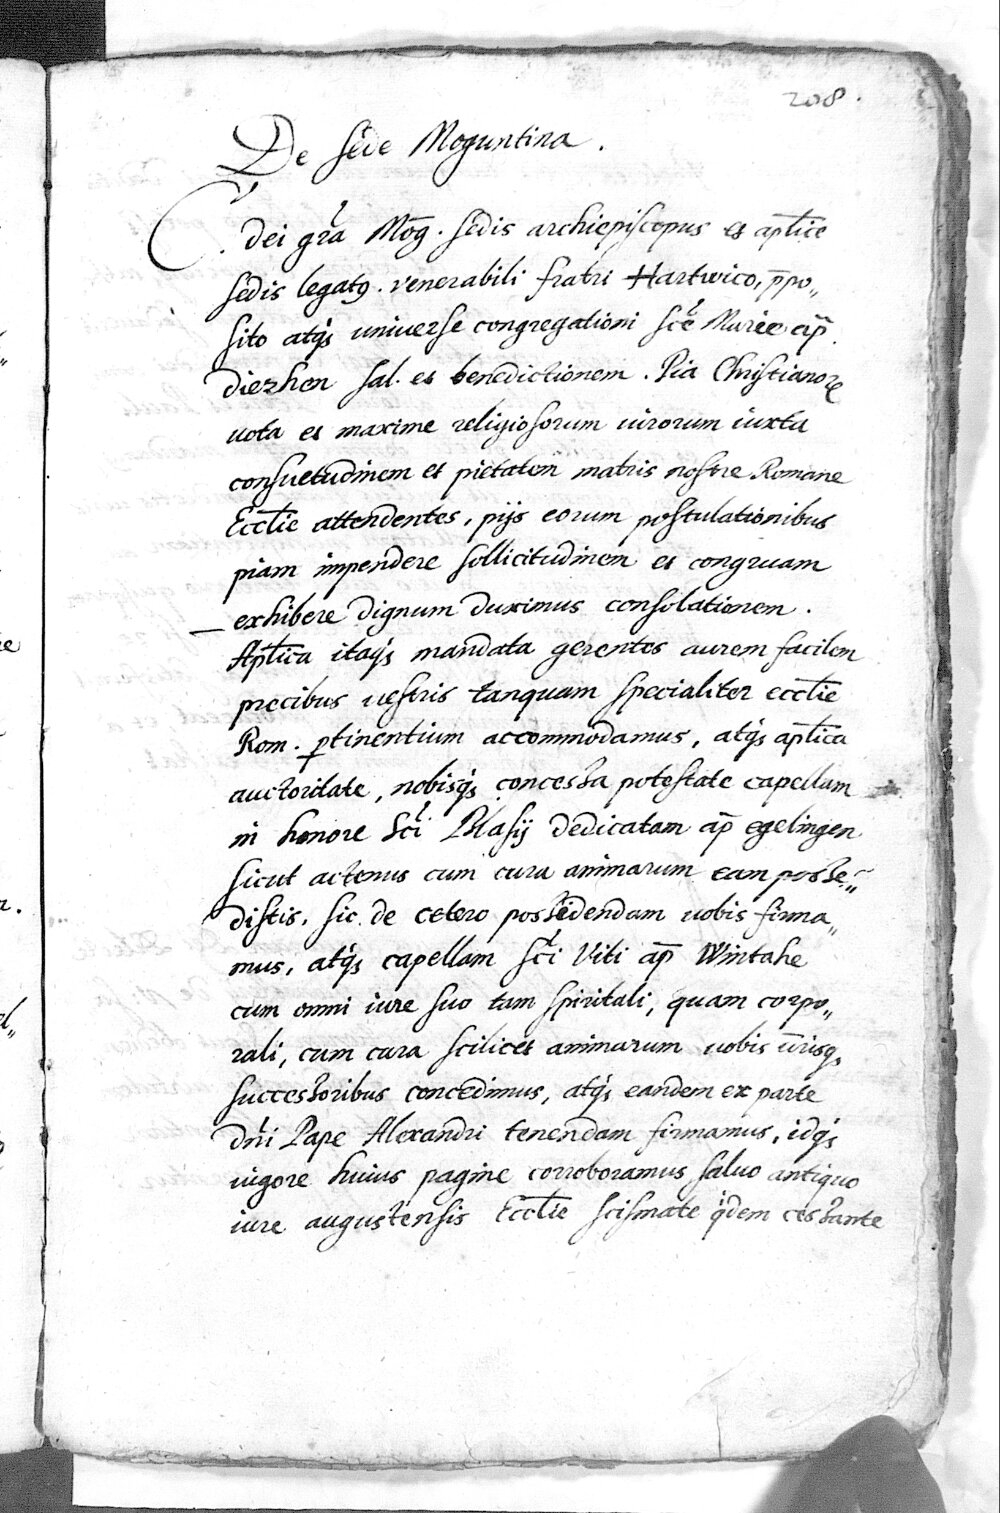 208.
De sede Moguntina.
C. dei gr̄a Mog̅. sedis archiepiscopus et ap̄lice
sedis legatꝰ. venerabili fratri Hartwico, p̄po„
sito atq́ꝫ universe congregationi sc̄e Marie ap̄.
diezhen sal. et benedictionem. Pia Christianorꝝ
uota et maxime religiosorum uirorum iuxta
consuetudinem et pietatem matris nostre Romane
Eccl̄ie attendentes, pijs eorum postulationibus
piam impendere sollicitudinem et congruam
exhibere dignum duximus consolationem.
Ap̄lica itaq́ꝫ mandata gerentes aurem facilem
precibus uestris tanquam specialiter eccl̄ie
Rom. ꝑtinentium accommodamus, atq́ꝫ ap̄lica
auctoritate, nobisq́ꝫ concessa potestate capellam
in honore Sc̄i Blasij dedicatam ap̄ egelingen
sicut actenus cum cura animarum eam posse„
distis, sic de cetero possidendam uobis firma„
mus, atq́ꝫ capellam Sc̄i Viti ap̄ Wintahe
cum omni iure suo tam spiritali, quam corpo„
rali, cum cura scilicet animarum uobis ur̄isqꝫ
successoribus concedimus, atq́ꝫ eandem ex parte
dn̄i Pape Alexandri tenendam firmamus, idq́ꝫ
uigore huius pagine corroboramus saluo antiquo
iure augustensis Eccl̄ie scismate qⁱdem cessante